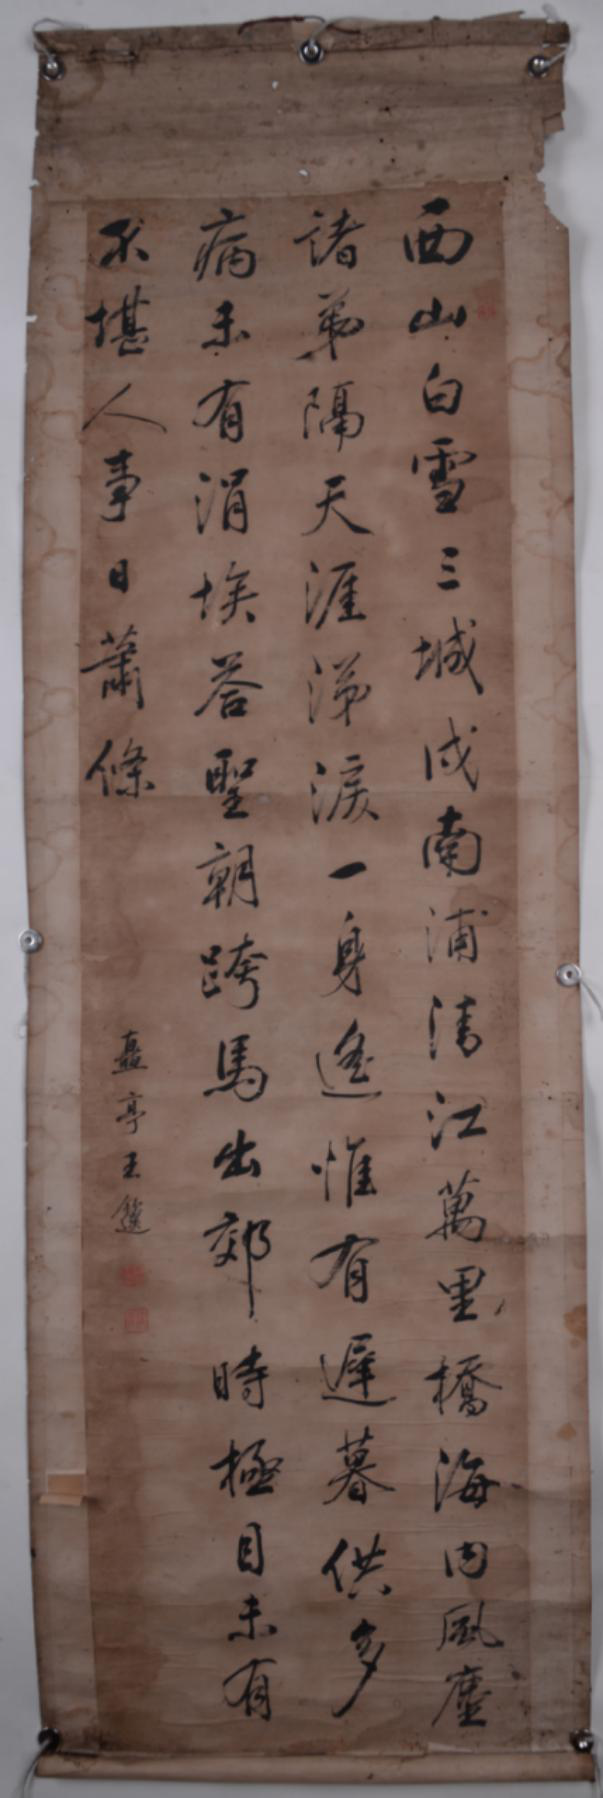 西山白雪三城戍南浦清江萬里橋海內風塵
諸弟隔天涯涕淚一身遙惟有遲暮供多
病未有涓埃答聖朝跨馬出郊時極目未有
不堪人事日蕭條
亭王